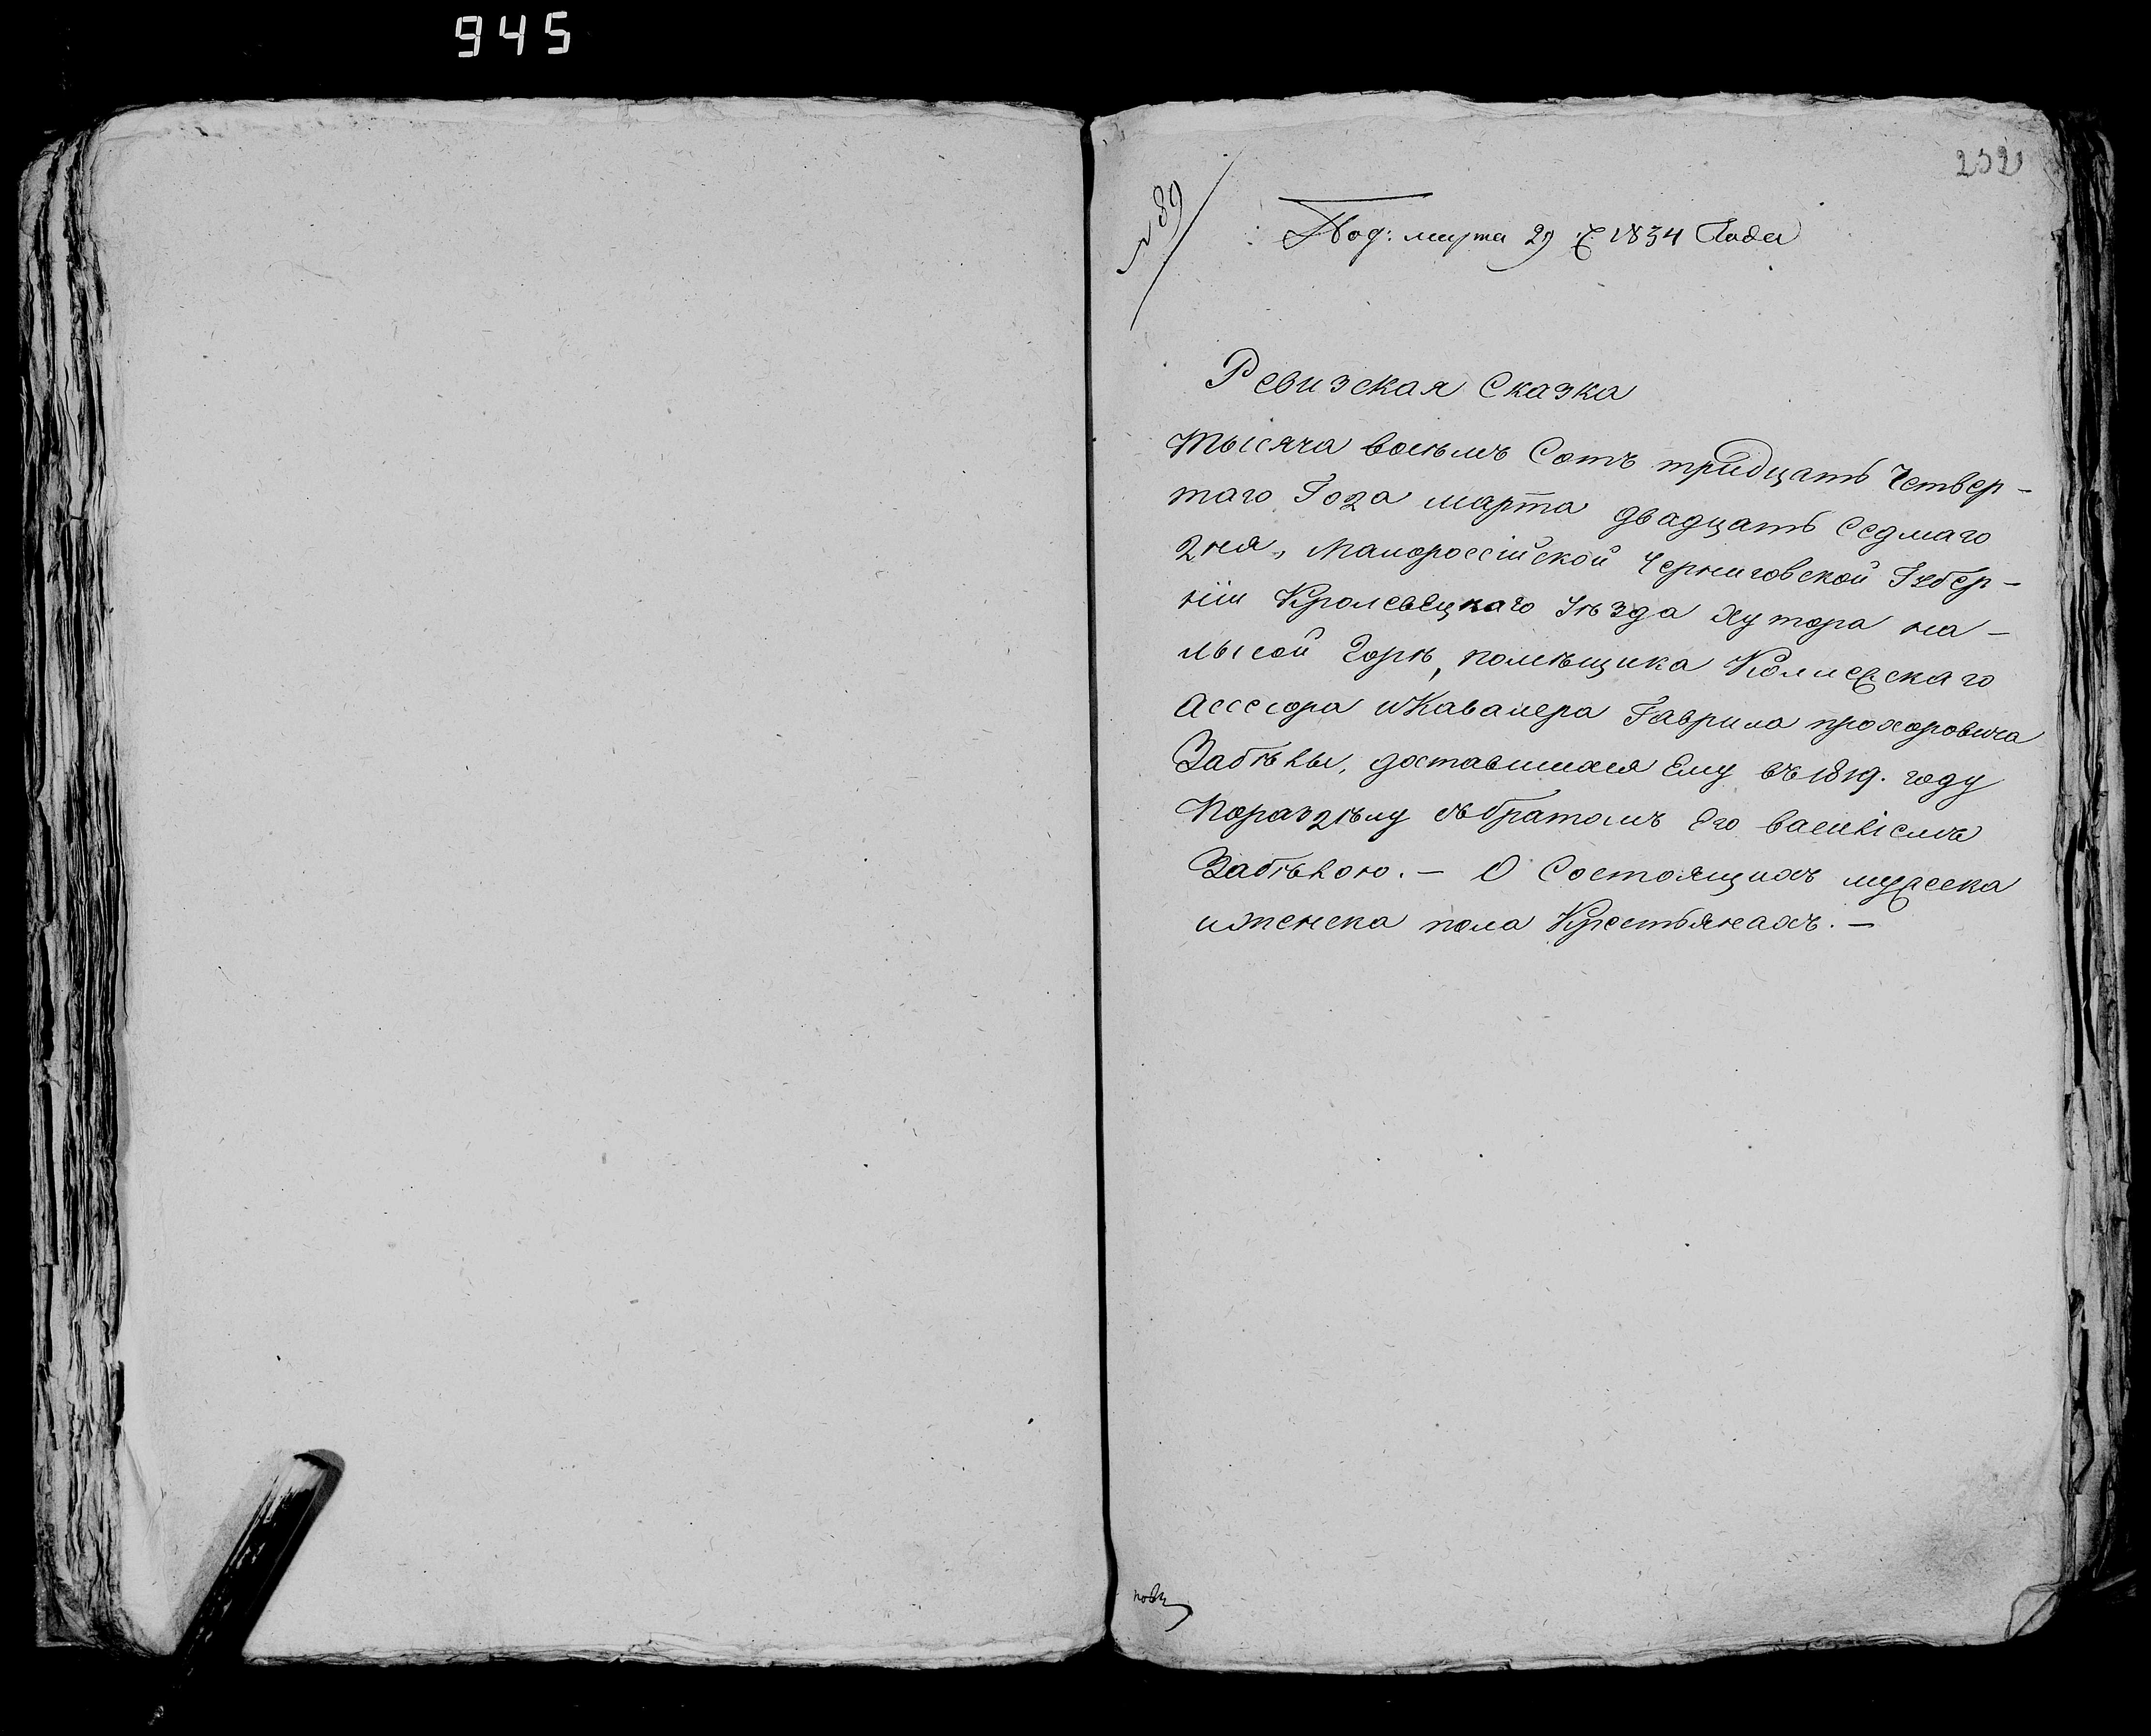 945
232
№ 89
Под: марта 29 ч. 1834 Года
Ревизская Сказка
тысяча восѣмъ Сотъ тридцать Четвер-
таго Года марта двадцать Седмаго
дня, Малороссійской Черниговской Губер-
ніи Кролевецкаго Уѣзда Хутора на-
лысой Горѣ, помѣщикаКолежскаго
Ассесора иКавалера Гаврила прохоровича
Забѣлы, доставшихся Ему въ 1819. году
Поразделу събратомъ Его василіемъ
Забѣлою. — О Состоящихъ мужеска
иженска пола Крестьянахъ. —